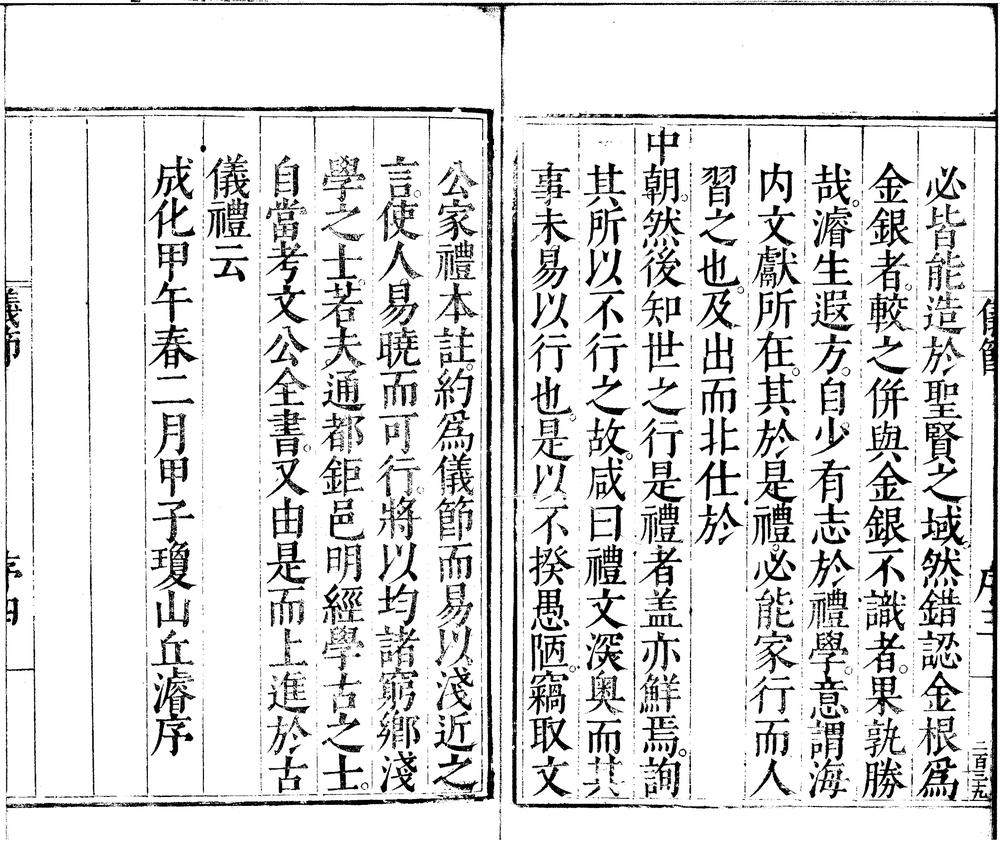 必皆能造於聖賢之域。然錯認金根為
金銀者。較之併與金銀不識者。果孰勝
哉。濬生遐方。自少有志於禮學。意謂海
内文獻所在。其於是禮。必能家行而人
習之也。及出而北仕於
中朝。然後知世之行是禮者盖亦鮮焉。詢
其所以不行之故。咸曰禮文深奥而其
事未易以行也。是以不揆愚陋。竊取文
公家禮本註。約爲儀節而易以淺近之
言。使人易曉而可行。將以均諸窮鄉淺
學之士。若夫通都鉅邑明經學古之士。
自當考文公全書。又由是而上進於古
儀禮云
成化甲午春二月甲子瓊山丘濬序
儀節
二百三九
儀節
序四